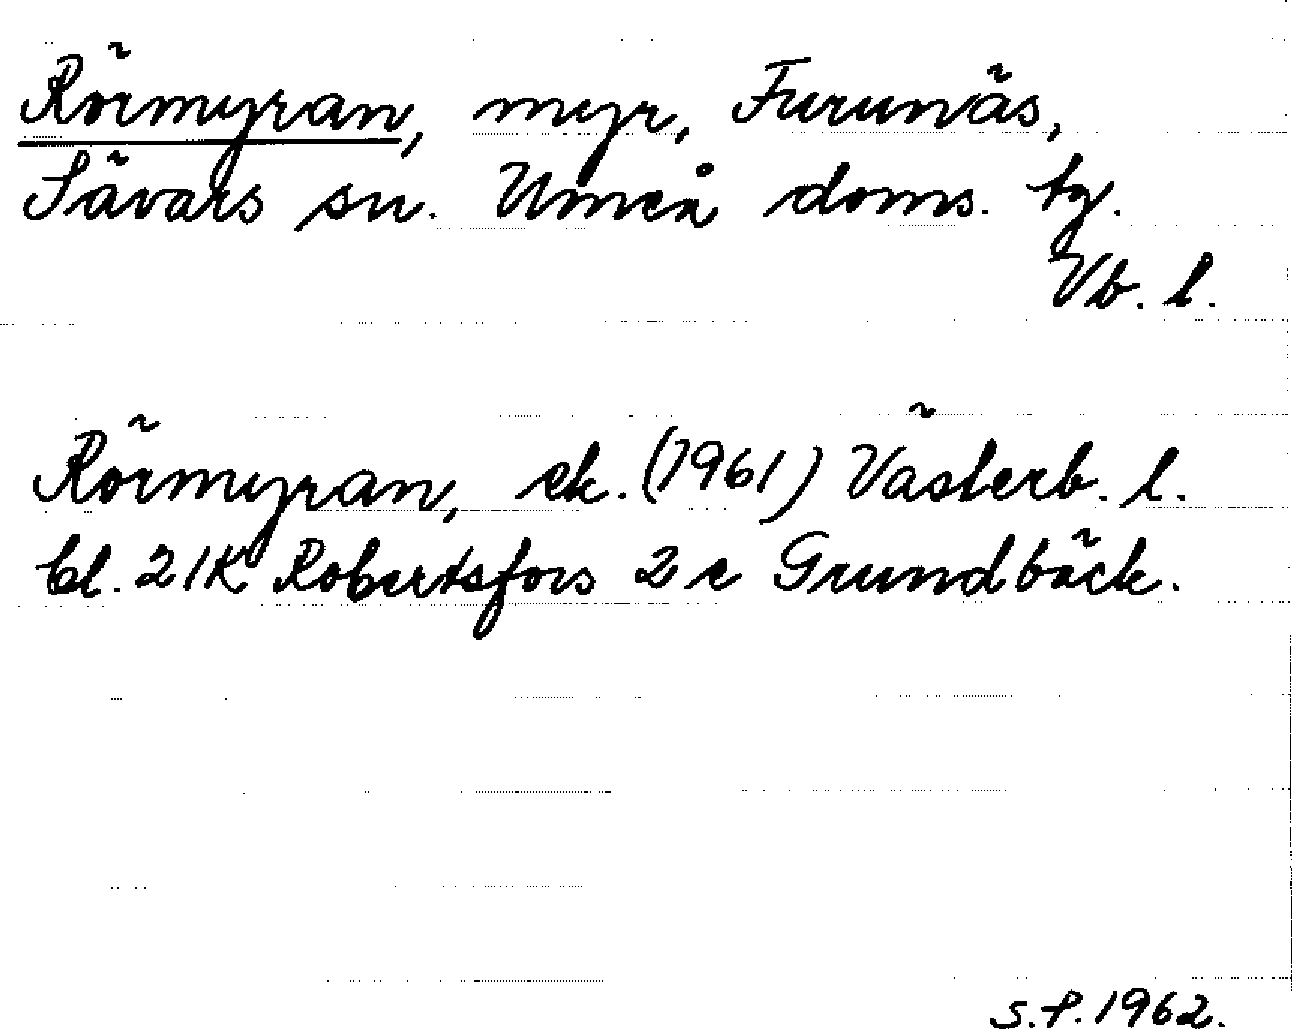 Rörmyran, myr, Furunäs,
Sävars sn. Umeå doms. tg.
Vb. l.
Rörmyran, ek. (1961) Västerb. l.
bl. 21K Robertsfors 2 c Grundbäck.
S.P. 1962.